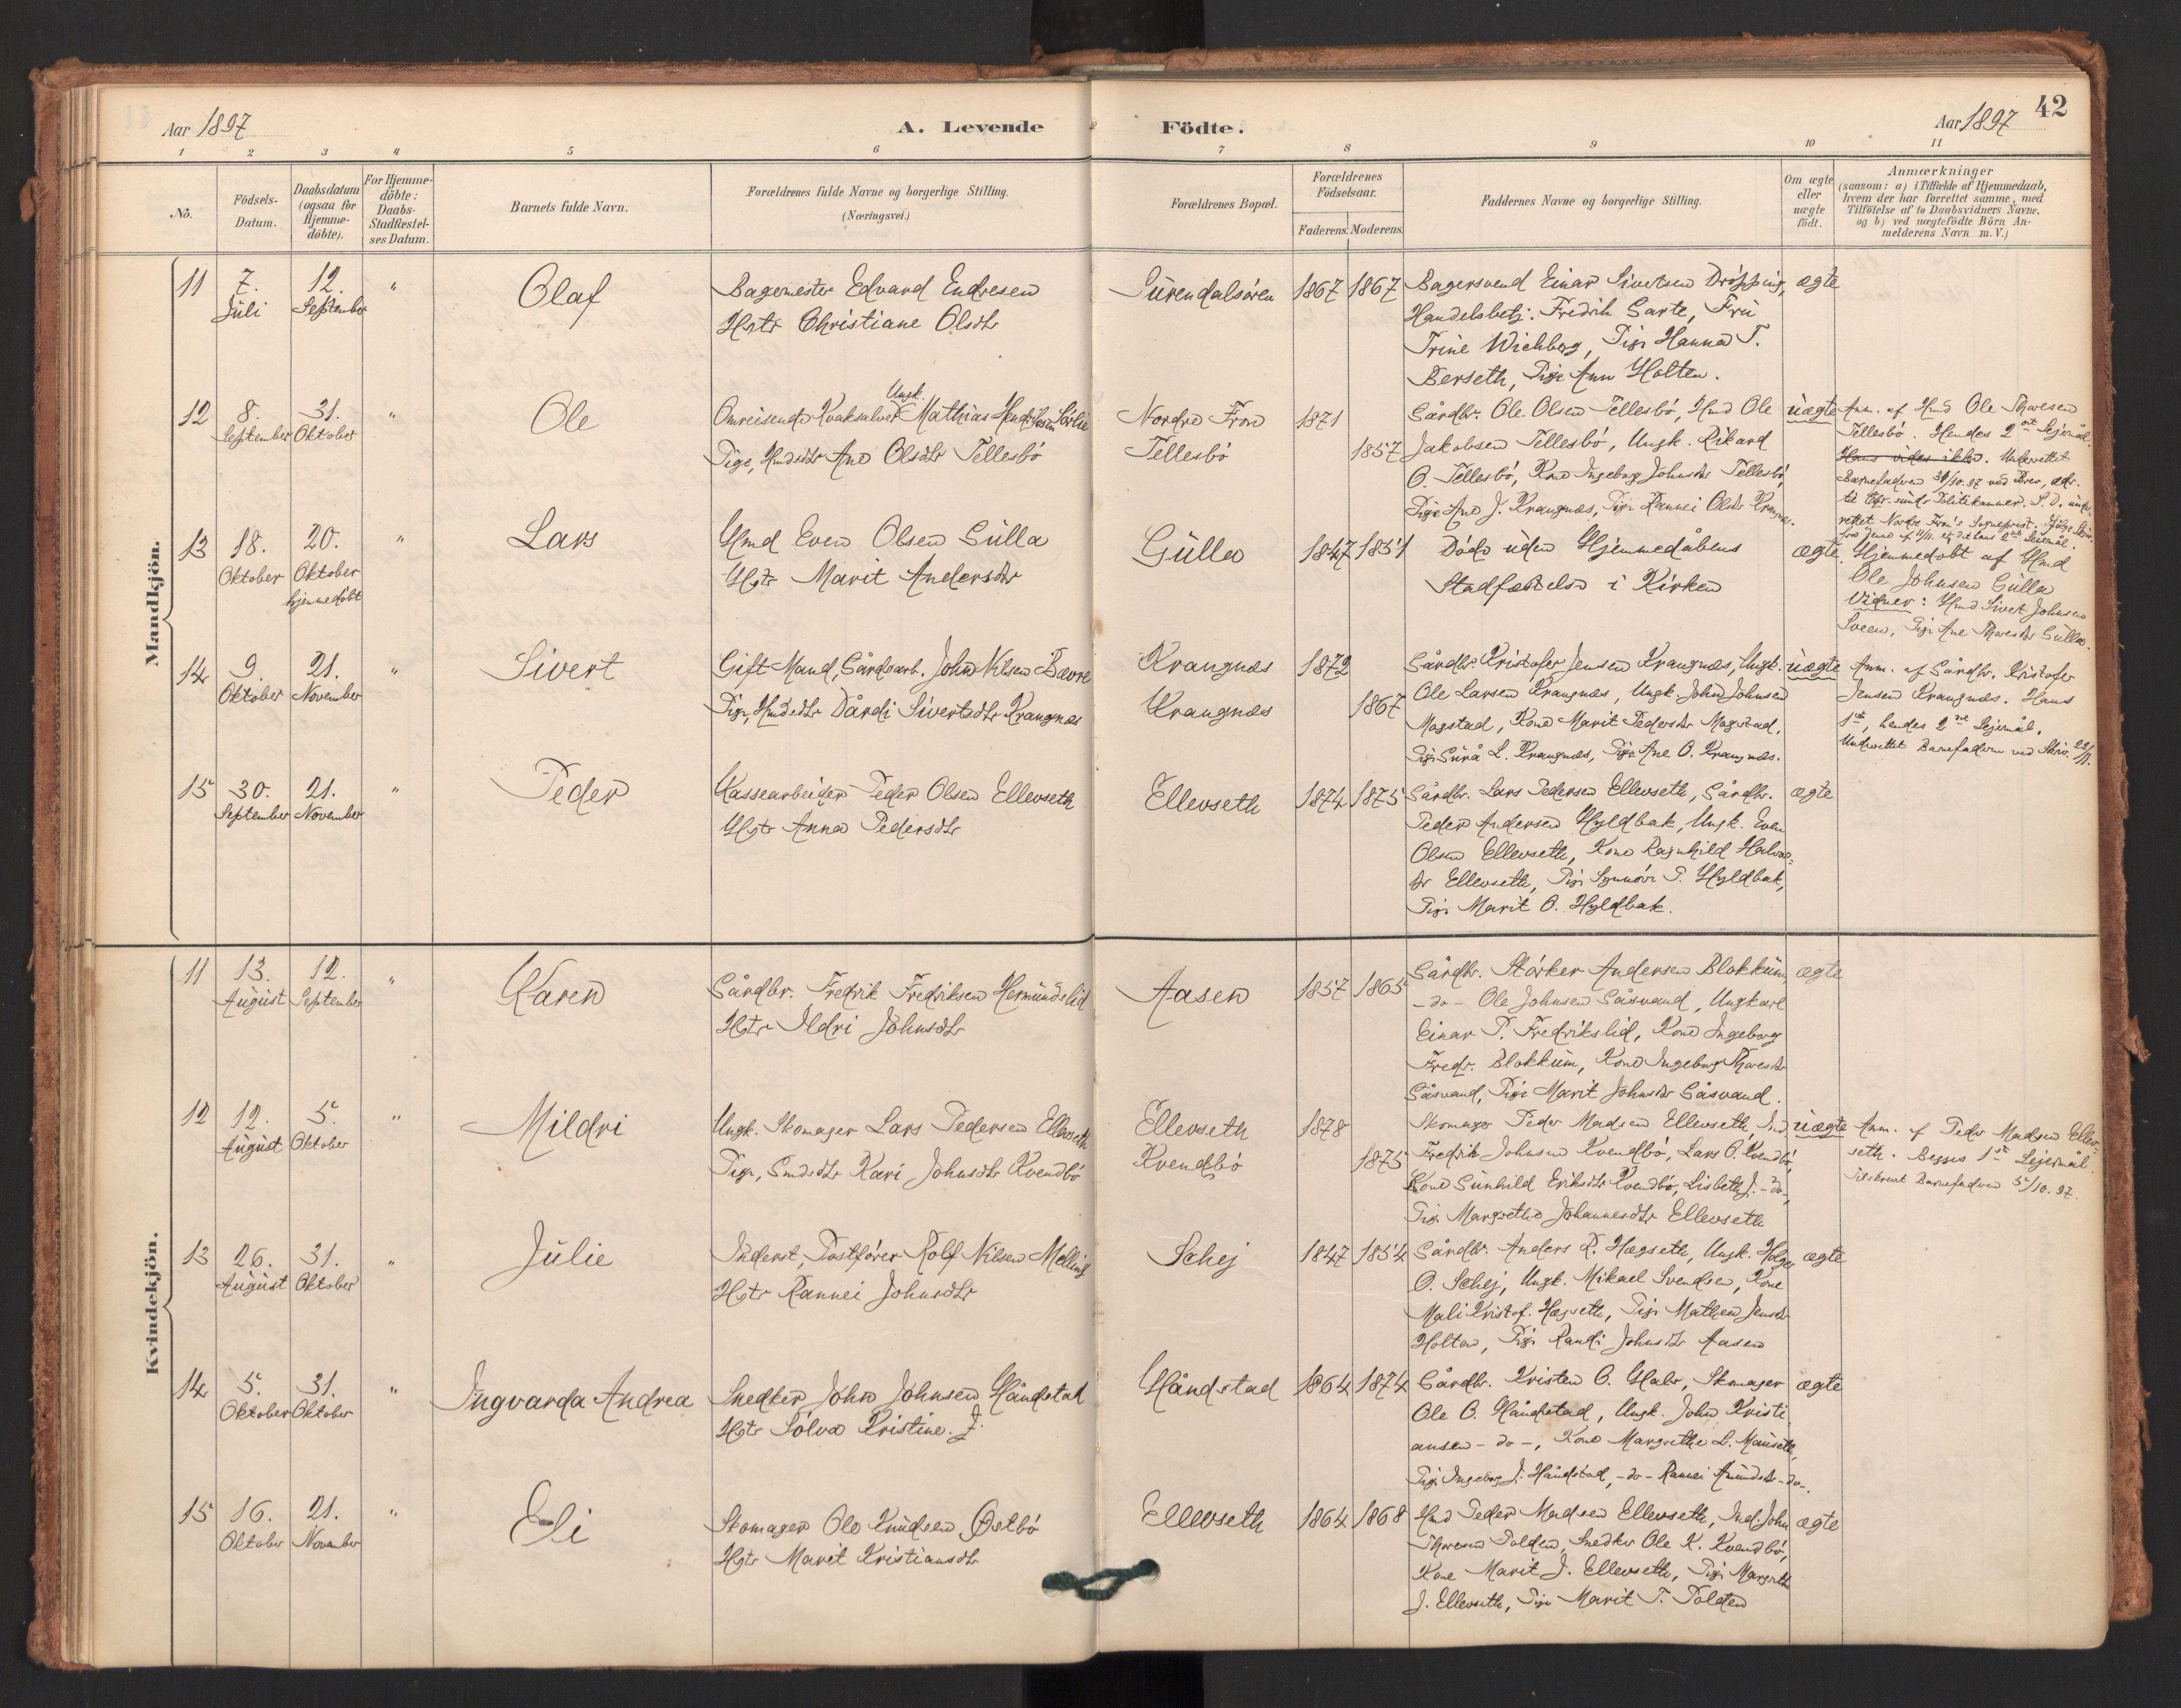 Aar 1897
A. Levende
Födte.
Aar 1897
42
1 2 3 4 5 6 7 8 9 10 11
No.
Födsels-
Datum.
Daabsdatum
(ogsaa for
Hjemme-
döbte).
For Hjemme-
döbte:
Daabs-
Stadfæstel-
ses Datum.
Barnets fulde Navn.
Forældrenes fulde Navne og borgerlige Stilling.
(Næringsvei.)
Forældrenes Bopæl.
Forældrenes
Födselsaar.
Faderens. Moderens.
Faddernes Navne og borgerlige Stilling.
Om ægte
eller
uægte
födt.
Anmærkninger
(saasom: a) i Tilfælde af Hjemmedaab,
hvem der har forrettet samme, med
Tilföielse af to Daabsvidners Navne,
og b) ved uægtefödte Börn An-
melderens Navn m. V.)
Mandkjön.
11 7. 12. " Olaf
Juli September
Bagermester Edvard Endresen
Hstr Christiane Olsdtr
Surendalsören 1867 1867
Bagersvend Einar Sivertsen Dröpping, ægte
Handelsbetj. Fredrik Garte, Fru
Trine Wichberg, Pige Hanna T.
Berseth, Pige Ann Holten.
12 8. 31. " Ole
September Oktober
Ungk.
Omreisende Kvaksalver Mathias Hendriksen Sörlie
Pige, Hmdsdtr Ane Olsdtr Tellesbö
Nordre Fron 1871
Tellesbö 1857
Gårdbr. Ole Olsen Tellesbö, Hmd Ole uægte
Jakobsen Tellesbö, Ungk. Rikard
O. Tellesbö, Kone Ingeborg Johnsdtr Tellesbö,
Pige Ane J. Krangnæs, Pige Rannei Olsdtr Krangnæs.
Anm. af Hmd Ole Thoresen
Tellesbö. Hendes 2det Lejermål.
Hans vides ikke. Underrettet
Barnefaderen 31/10.97 ved Brev, adr.
13 18. 20. " Lars
Oktober Oktober
hjemmedöbt
Hmd Even Olsen Gulla
Hstr Marit Andersdtr
Gulla 1847 1851
Döde uden Hjemmedåbens ægte
Stadfæstelse i Kirken
Hjemmedöbt af Hmd
Ole Johnsen Gulla
Vidner: Hmd Sivert Johnsen
Sveen, Pige Ane Thoresdtr Gulla.
14 9. 21. " Sivert
Oktober November
Gift Mand, Gårdsarb. John Nilsen Bævre
Pige, Hmdsdtr Dårdi Sivertsdtr Krangnæs
Krangnæs 1872
Krangnæs 1867
Gårdbr. Kristofer Jensen Krangnæs, Ungk. uægte
Ole Larsen Krangnæs, Ungk. John Johnsen
Mogstad, Kone Marit Pedersdtr Mogstad,
Pige Gurå L. Krangnæs, Pige Ane O. Krangnæs.
Anm. af Gårdbr. Kristofer
Jensen Krangnæs. Hans
1ste, hendes 2det Lejermål.
Underrettet Barnefaderen ved Skriv. 22/11.
15 30. 21. " Peder
September November
Kassearbeider Peder Olsen Ellevseth
Hstr Anna Pedersdtr
Ellevseth 1874 1875
Gårdbr. Lars Pedersen Ellevseth, Gårdbr. ægte
Peder Andersen Hyldbak, Ungk. Even
Olsen Ellevseth, Kone Ragnhild Halvor=
dtr Ellevseth, Pige Synnöve P. Hyldbak,
Pige Marit O. Hyldbak.
Kvindekjön.
11 13. 12. " Karen
August September
Gårdbr. Fredrik Fredriksen Hermundslid
Hstr Ildri Johnsdtr
Aasen 1857 1865
Gårdbr. Störker Andersen Blokkum, ægte
-do- Ole Johnsen Gåsvand, Ungkarl
Einar P. Fredrikslid, Kone Ingeborg
Fredr. Blokkum, Kone Ingeborg Thoresdtr
Gåsvand, Pige Marit Johnsdtr Gåsvand.
12 12. 5. " Mildri
August Oktober
Ungk. Skomager Lars Pedersen Ellevseth
Pige, Kari Johnsdtr Kvendbö
Ellevseth 1878
Kvendbö 1875
Skomager Peder Madsen Ellevseth, Ind. uægte
Fredrik Johnsen Kvendbö, Lars O. Kvendbö,
Kone Gunhild Eriksdtr Kvendbö, Lisbeth J. -do-,
Pige Margrethe Johannesdtr Ellevseth
Anm. af Peder Madsen Ellev=
seth. Begges 1ste Lejermål.
Tilskrevet Barnefaderen 5/10.97.
13 26. 31. " Julie
August Oktober
Inderst, Postförer Rolf Nilsen Melling
Hstr Rannei Johnsdtr
Schej 1847 1854
Gårdbr. Anders R. Hægseth, Ungk. Holger ægte
O. Schej, Ungk. Mikael Svendsen, Kone
Mali Kristof. Hægseth, Pige Mathea Jensdtr
Holten, Pige Randi Johnsdtr Aasen
14 5. 31. " Ingvarda Andrea
Oktober Oktober
Snedker John Johnsen Håndstad
Hstr Sölva Kristine J.
Håndstad 1864 1874
Gårdbr. Kristen O. Hals, Skomager ægte
Ole O. Håndstad, Ungk. John Kristi
ansen -do-, Kone Margrethe L. Mauseth,
Pige Ingeborg J. Håndstad, -do- Rannei Amundsdtr -do-.
15 16. 21. " Eli
Oktober November
Skomager Ole Knudsen Østbö
Hstr Marit Kristiansdtr
Ellevseth 1864 1868
Hmd Peder Madsen Ellevseth, Ind. John ægte
Thoresen Polden, Snedker Ole K. Kvendbö,
Kone Marit J. Ellevseth, Pige Margrethe
J. Ellevseth, Pige Marit T. Polden